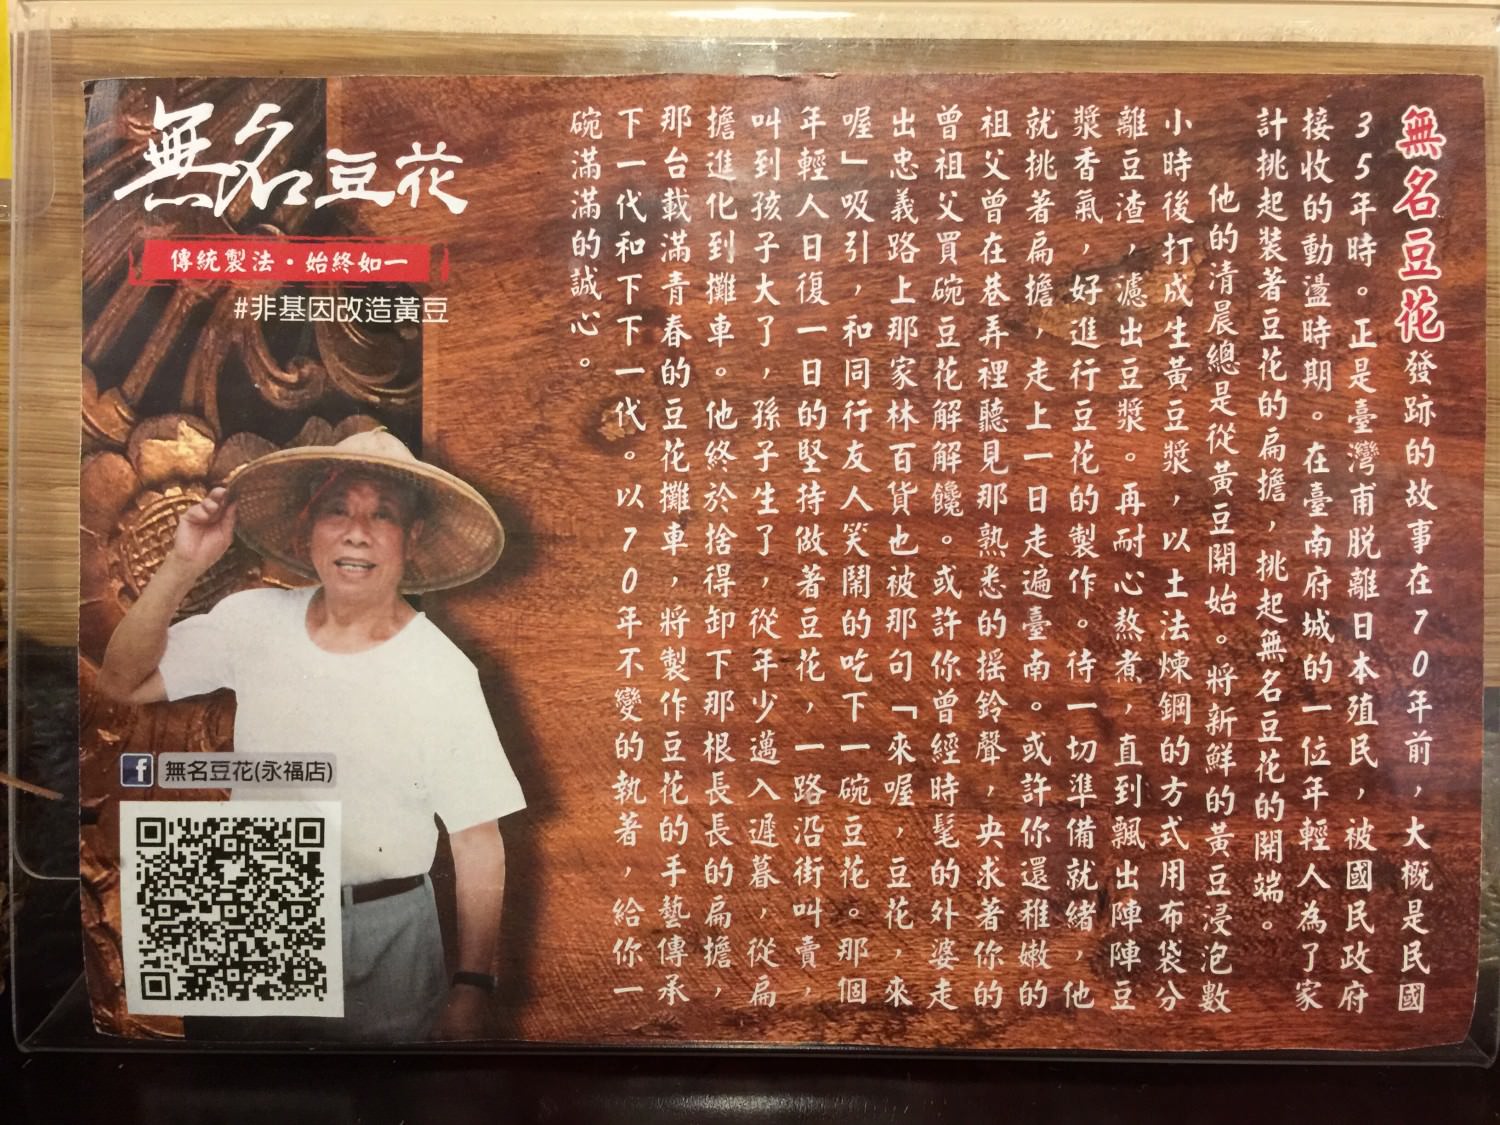 無名豆花
傳統製法·始終如一
#非基因改造黃豆
無名豆花發跡的故事在70年前，大概是民國
35年時。正是臺灣甫脫離日本殖民，被國民政府
接收的動盪時期。在臺南府城的一位年輕人為了家
計挑起裝著豆花的扁擔，挑起無名豆花的開端。
他的清晨總是從黃豆開始。將新鮮的黃豆浸泡數
小時後打成生黃豆漿，以土法煉鋼的方式用布袋分
離豆渣，濾出豆漿。再耐心熬煮，直到飄出陣陣豆
漿香氣，好進行豆花的製作。待一切準備就緒，他
就挑著扁擔，走上一日走遍臺南。或許你還稚嫩的
祖父曾在巷弄裡聽見那熟悉的搖鈴聲，央求著你的
曾祖父買碗豆花解解饞。或許你曾經時髦的外婆走
出忠義路上那家林百貨也被那句「來喔，豆花，來
喔」吸引，和同行友人笑鬧的吃下一碗豆花。那個
年輕人日復一日的堅持做著豆花，一路沿街叫賣，
叫到孩子大了，孫子生了，從年少邁入遲暮，從扁
擔進化到攤車。他終於捨得卸下那根長長的扁擔，
那台載滿青春的豆花攤車，將製作豆花的手藝傳承
下一代和下下一代。以70年不變的執著，給你一
碗滿滿的誠心。
f 無名豆花(永福店)